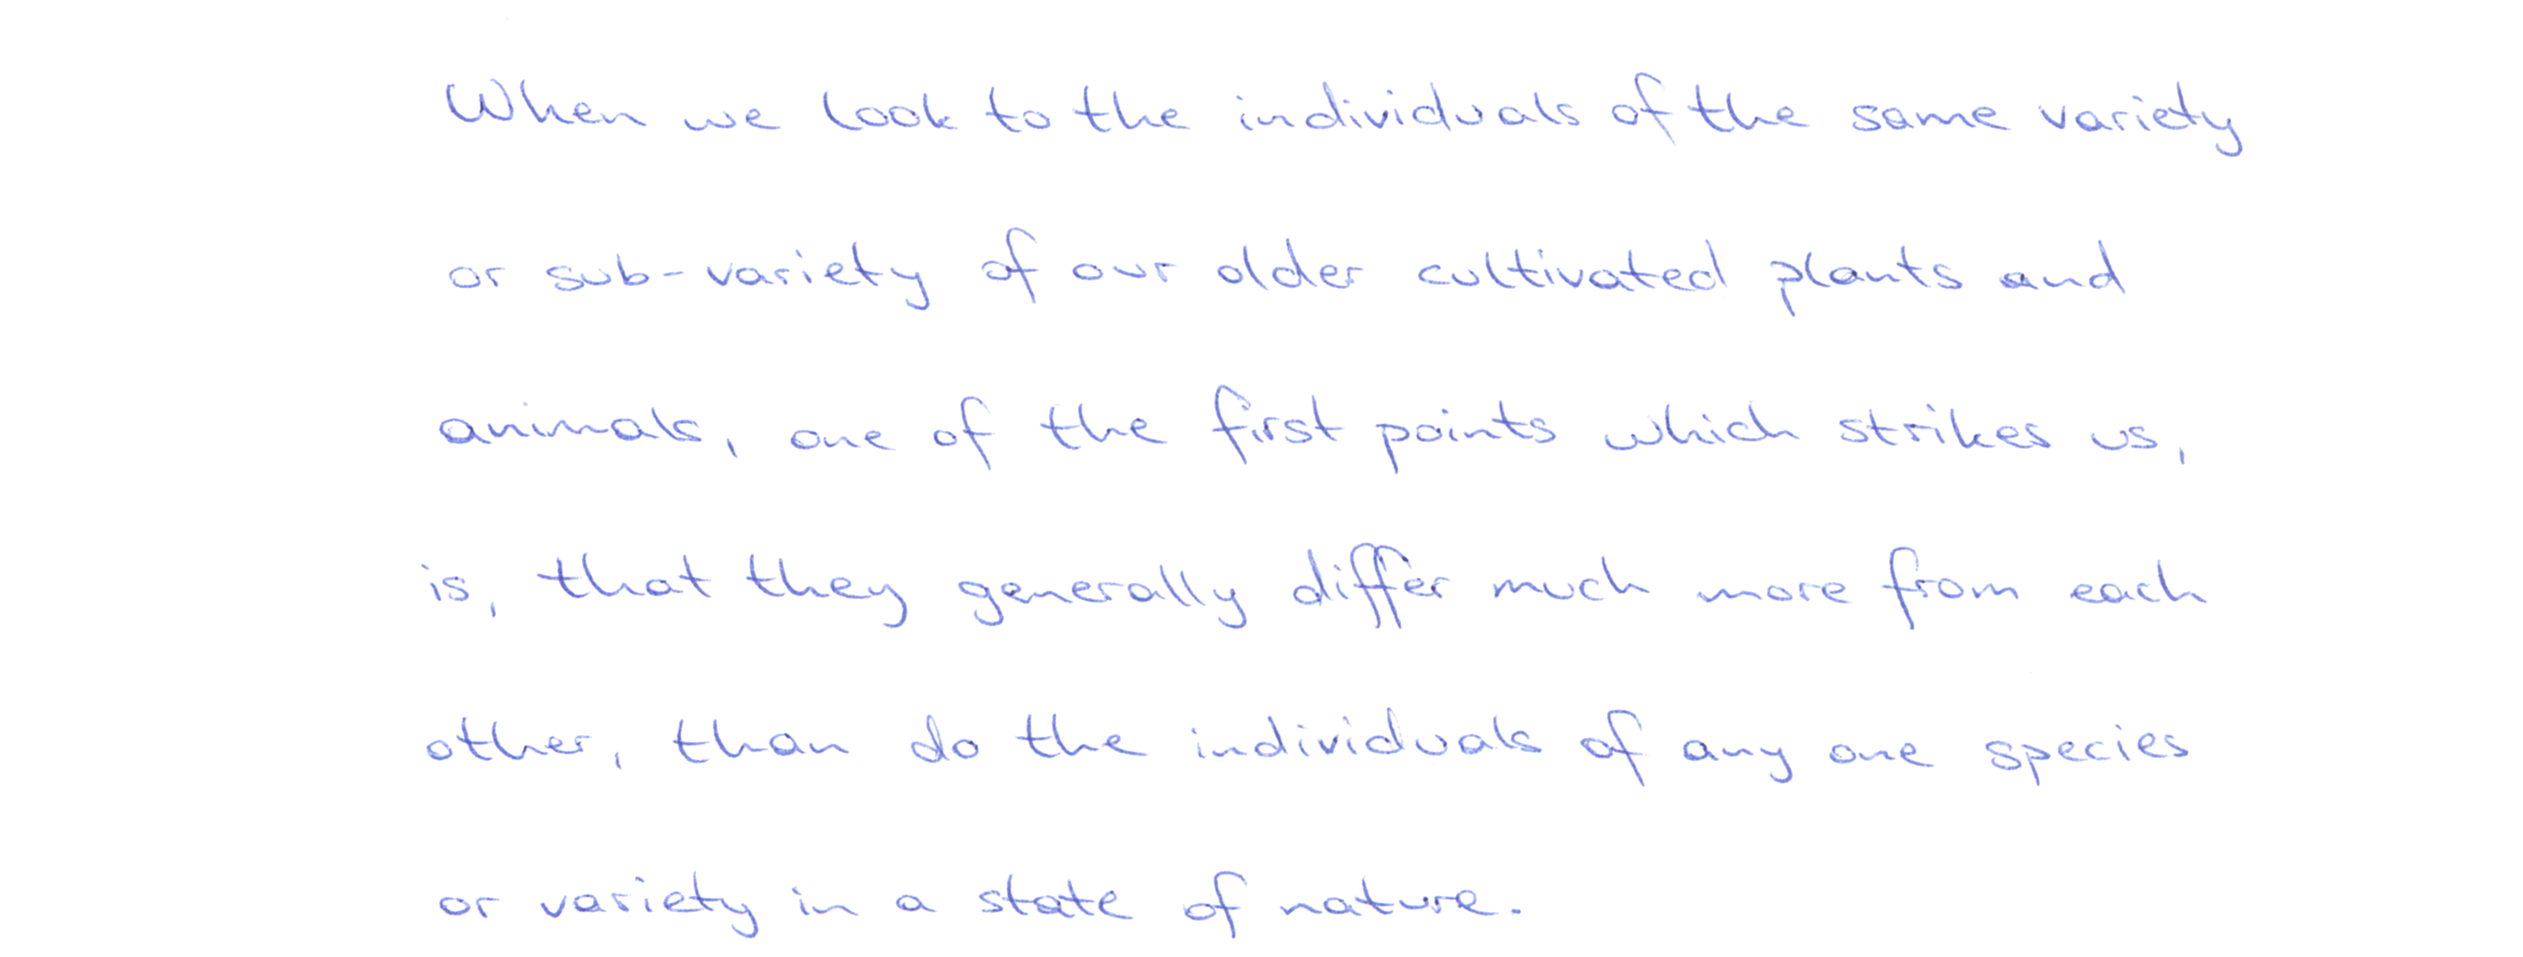 When we look to the individuals of the same variety
or sub-variety of our older cultivated plants and
animals, one of the first points which strikes us,
is, that they generally differ much more from each
other, than do the individuals of any one species
or variety in a state of nature.